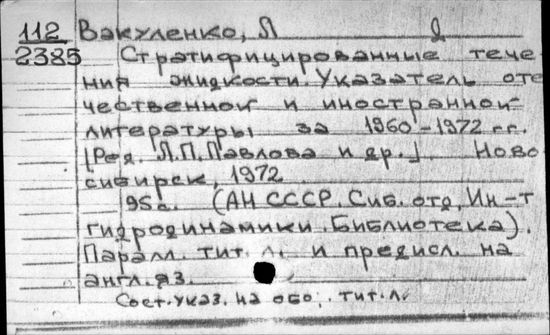 112 Вакуленко, Л Я
2385 Стратифицированные тече-
ния жидкости. Указатель оте-
чественной и иностранной
литературы за 1960-1972 гг.
[Ред. Л.П.Павлова и др.]. Ново-
сибирск, 1972
95с. (АН СССР. Сиб. отд, Ин-т
гидродинамики. Библиотека).
Паралл. тит. л. и предисл. на
англ.яз.
Сост. указ. на обо. тит. л.